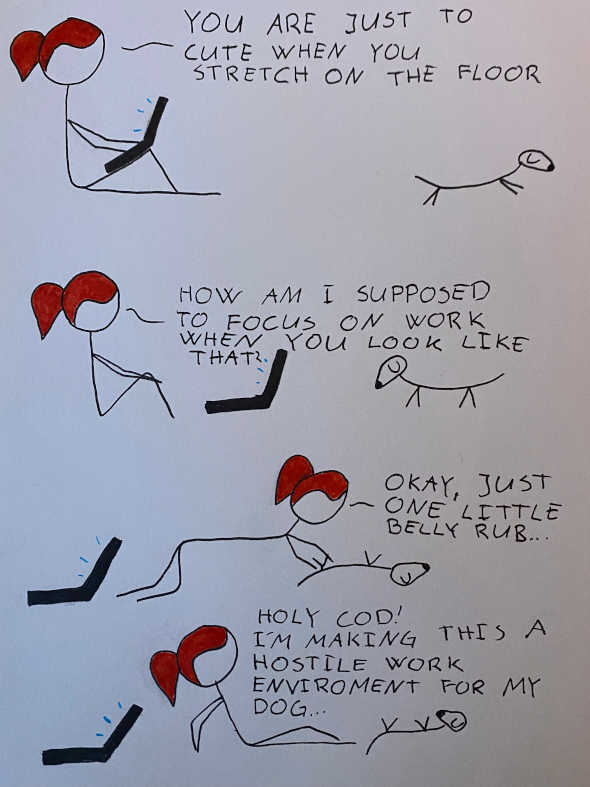 YOU ARE JUST TO
CUTE WHEN YOU
STRETCH ON THE FLOOR
HOW AM I SUPPOSED
TO FOCUS ON WORK
WHEN YOU LOOK LIKE
THAT?
OKAY, JUST
ONE LITTLE
BELLY RUB...
HOLY COD!
I'M MAKING THIS A
HOSTILE WORK
ENVIROMENT FOR MY
DOG...